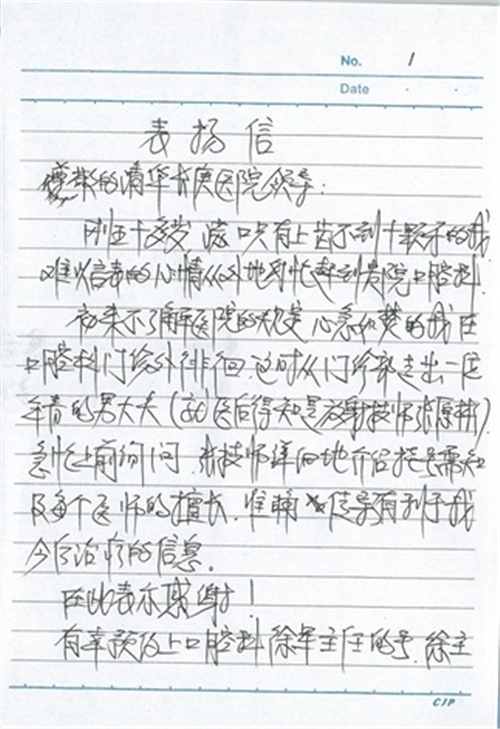 No. 1
Date
表扬信
尊敬的清华长庚医院领导：
刚五十多岁，满口只有上齿不到十颗牙的我
难以言表的心情从外地匆忙赶到贵院口腔科.
初来不了解医院的规定 心急如焚的我在
口腔科门诊外徘徊.这时从门诊部走出一位
年青的男大夫(就医后得知是放射技师张原彬).
急忙上前询问.张技师详细地介绍挂号需知
及每个医师的擅长.准确 传导有利于我
今后治疗的信息.
在此表示感谢！
有幸预约上口腔科徐军主任的号.徐主
CIP